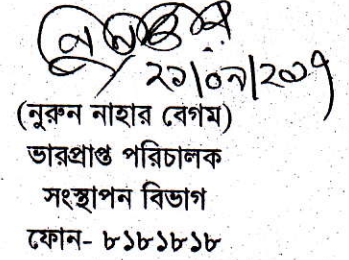 ২১/০৭/২০০৭
(নুরুন নাহার বেগম)
ভারপ্রাপ্ত পরিচালক
সংস্থাপন বিভাগ
ফোন- ৮১৮১৮১৮